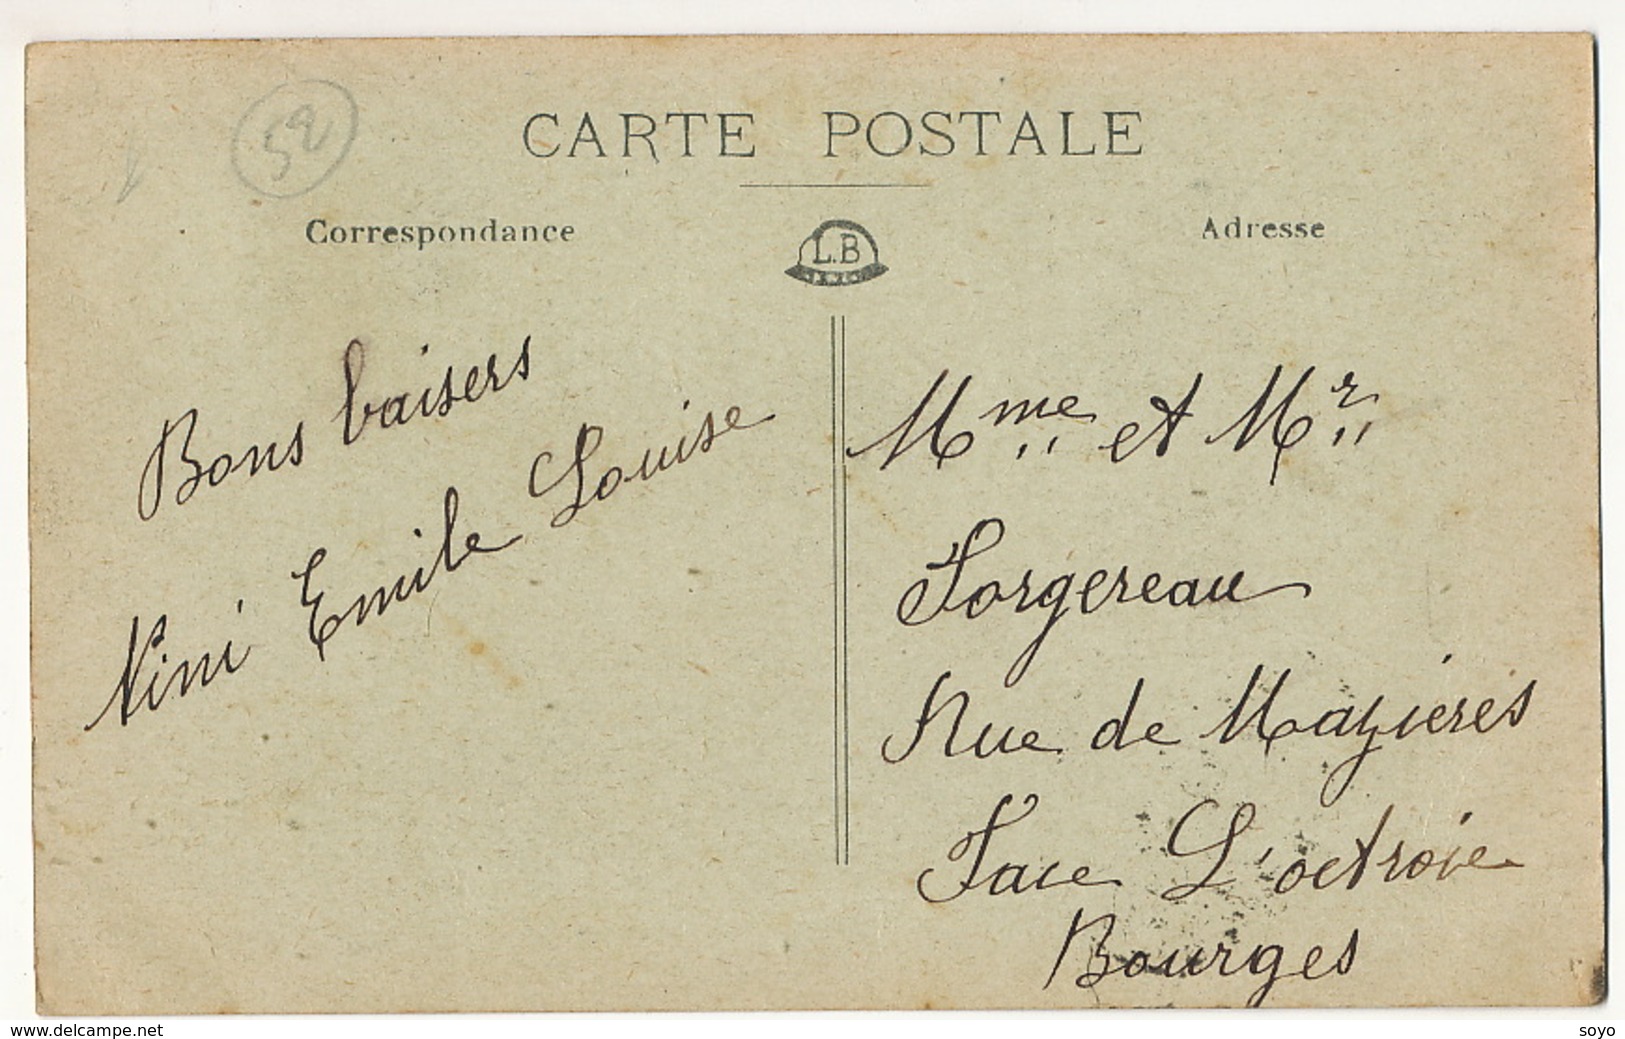 52
CARTE POSTALE
Correspondance
L.B
Adresse
Bons baisers
Nini Emile Louise
Mme et Mr
Sorgereau
Rue de Mazieres
Face L'octroie
Bourges
www.delcampe.net
soyo